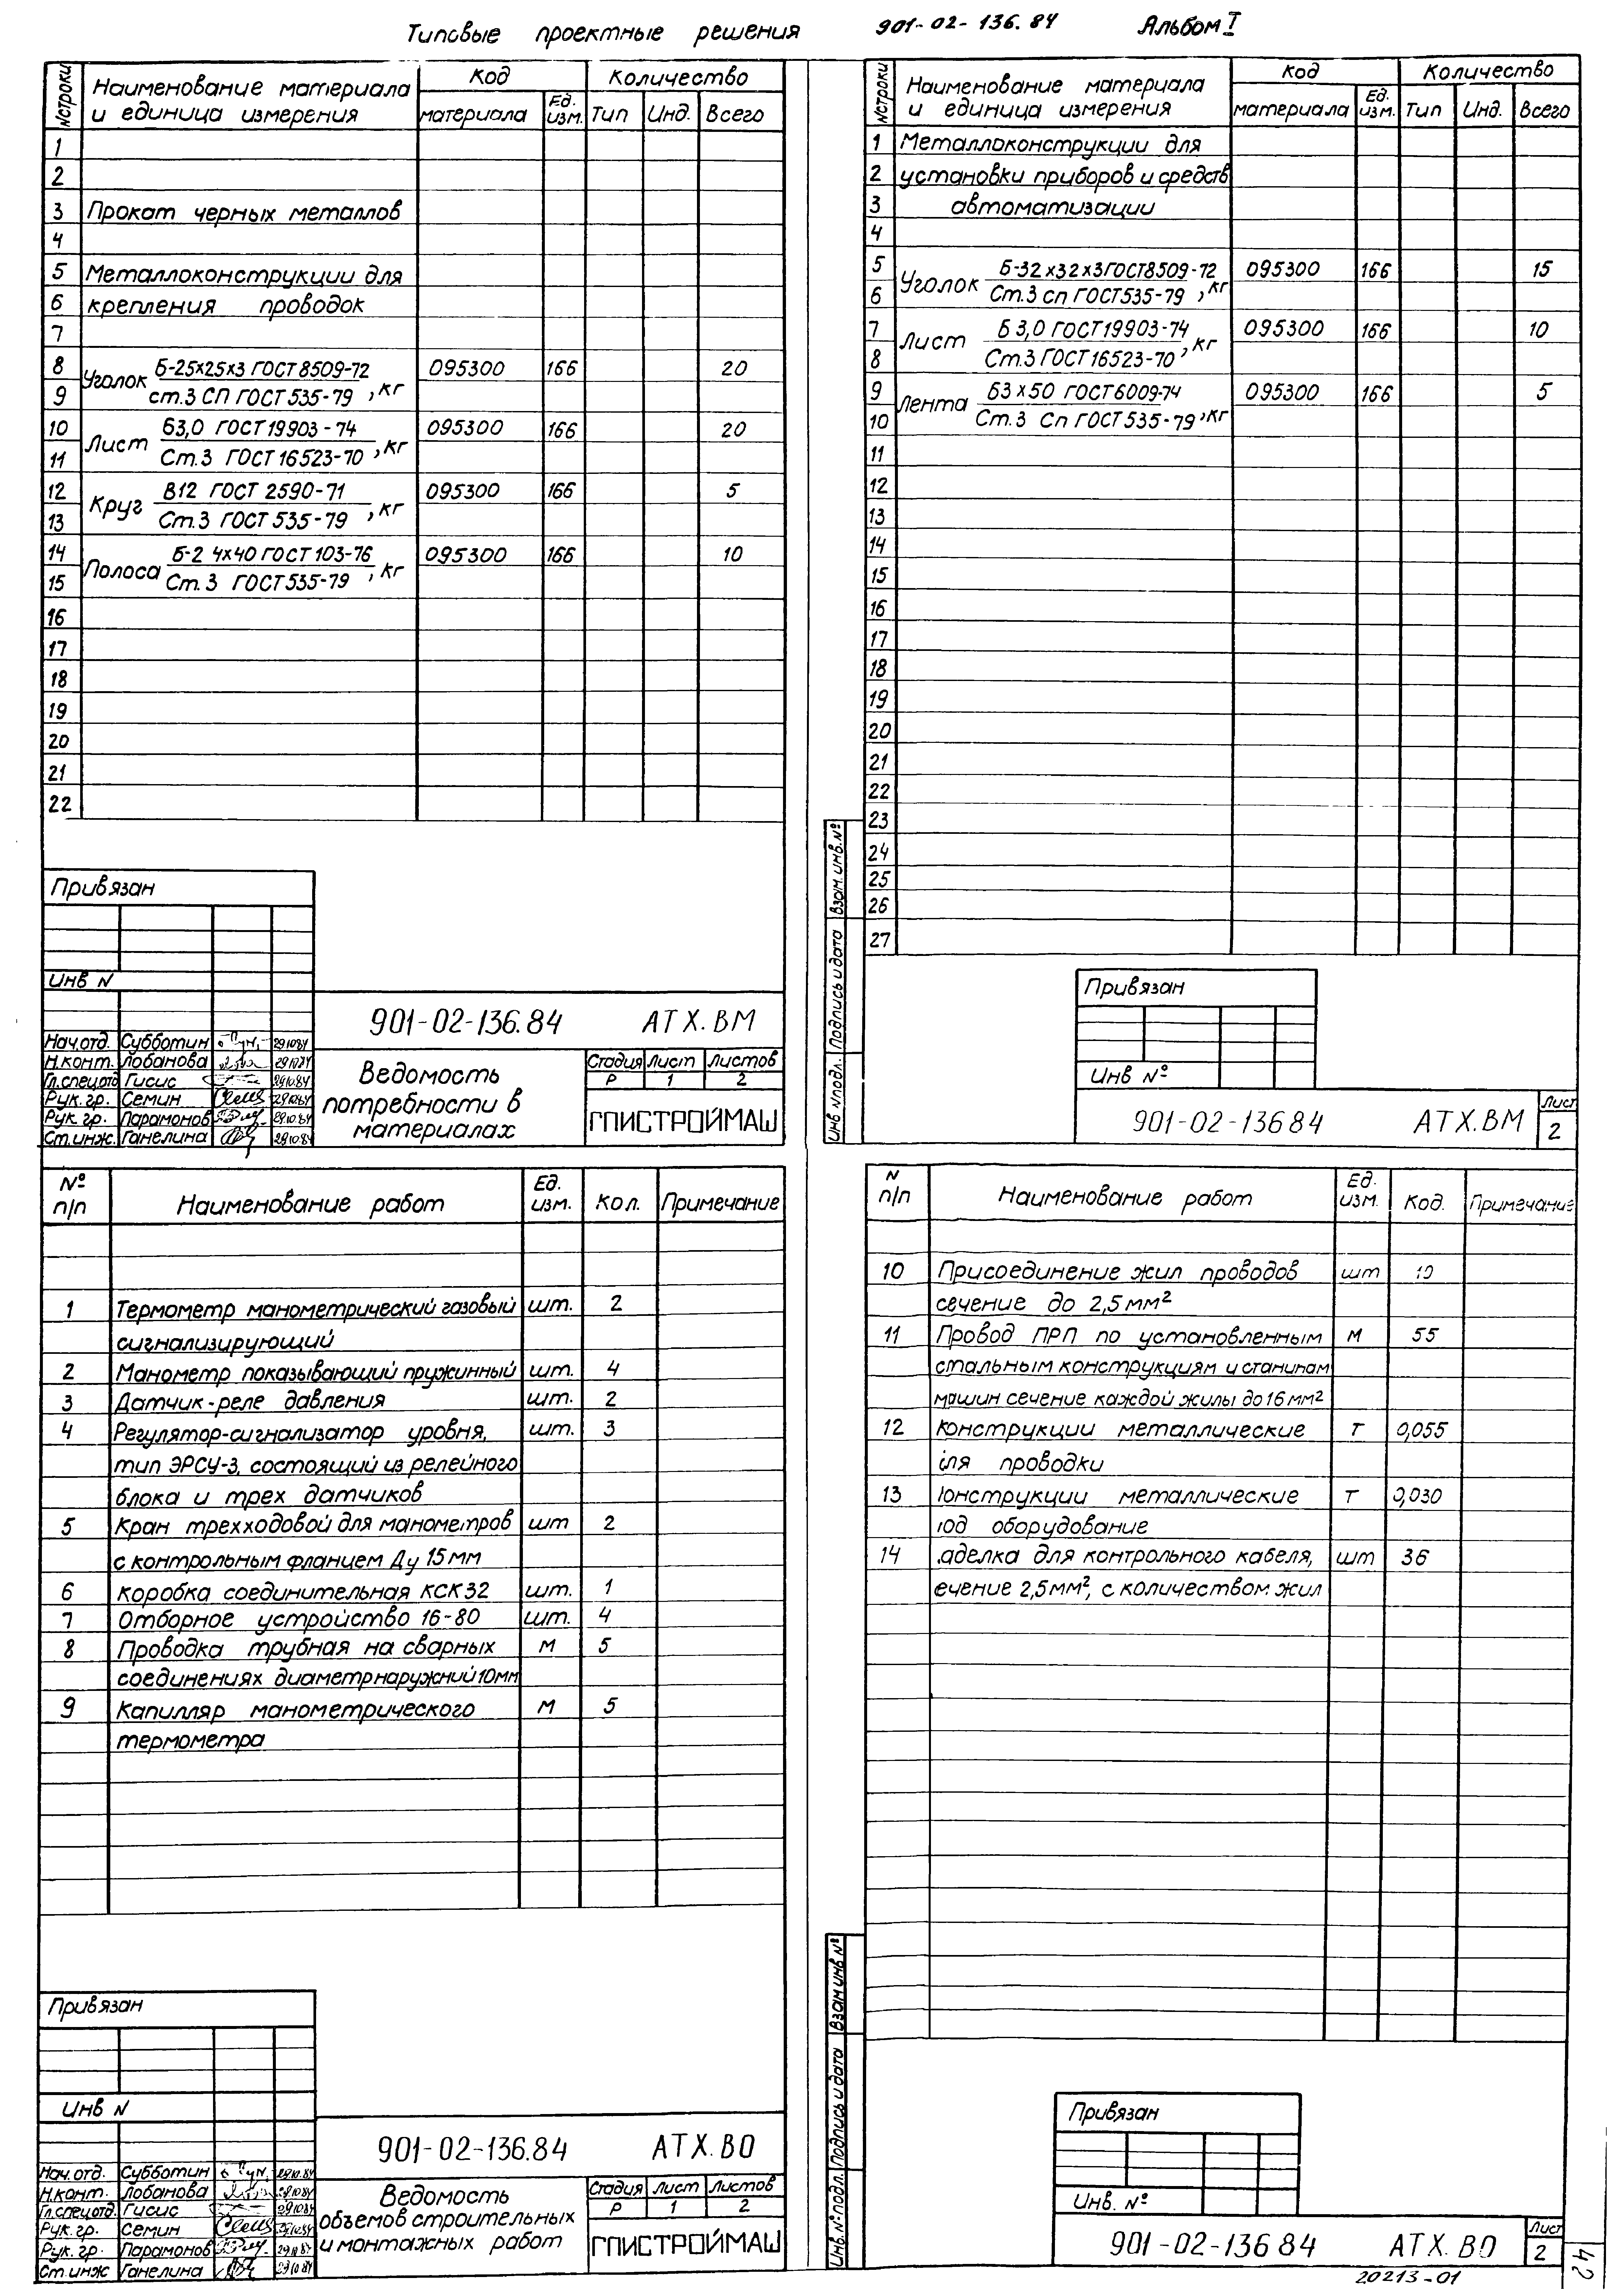 Типовые проектные решения 901-02-136.84 Альбом I
N строки Наименование материала и единица измерения Код Количество
материала Ед. изм. Тип Инд. Всего
1
2
3 Прокат черных металлов
4
5 Металлоконструкции для
6 крепления проводок
7
8 Уголок Б-25х25х3 ГОСТ 8509-72 095300 166 20
9 Ст.3 СП ГОСТ 535-79 , кг
10 Лист Б3,0 ГОСТ 19903-74 095300 166 20
11 Ст.3 ГОСТ 16523-70 , кг
12 Круг В12 ГОСТ 2590-71 095300 166 5
13 Ст.3 ГОСТ 535-79 , кг
14 Полоса Б-2 4х40 ГОСТ 103-76 095300 166 10
15 Ст.3 ГОСТ 535-79 , кг
16
17
18
19
20
21
22
Привязан
Инв N
Нач.отд. Субботин 29.10.84
Н.конт. Лобанова 29.10.84
Гл.спец.отд Гисис 29.10.84
Рук.гр. Семин 29.10.84
Рук.гр. Парамонов 29.10.84
Ст.инж. Ганелина 29.10.84
901-02-136.84 АТХ.ВМ
Ведомость
потребности в
материалах
Стадия Лист Листов
Р 1 2
ГПИСТРОЙМАШ
N строки Наименование материала и единица измерения Код Количество
материала Ед. изм. Тип Инд. Всего
1 Металлоконструкции для
2 установки приборов и средств
3 автоматизации
4
5 Уголок Б-32х32х3 ГОСТ 8509-72 095300 166 15
6 Ст.3 сп ГОСТ 535-79 , кг
7 Лист Б 3,0 ГОСТ 19903-74 095300 166 10
8 Ст.3 ГОСТ 16523-70 , кг
9 Лента Б3х50 ГОСТ 6009-74 095300 166 5
10 Ст.3 Сп ГОСТ 535-79 , кг
11
12
13
14
15
16
17
18
19
20
21
22
23
24
25
26
27
Инв N подл. Подпись и дата Взам. инв. №
Привязан
Инв №
901-02-136 84 АТХ.ВМ Лист 2
№ п/п Наименование работ Ед. изм. Кол. Примечание
1 Термометр манометрический газовый шт. 2
сигнализирующий
2 Манометр показывающий пружинный шт. 4
3 Датчик-реле давления шт. 2
4 Регулятор-сигнализатор уровня, шт. 3
тип ЭРСУ-3, состоящий из релейного
блока и трех датчиков
5 Кран трехходовой для манометров шт 2
с контрольным фланцем Ду 15 мм
6 коробка соединительная КСК 32 шт. 1
7 Отборное устройство 16-80 шт. 4
8 Проводка трубная на сварных м 5
соединениях диаметр наружний 10мм
9 Капилляр манометрического м 5
термометра
Привязан
Инв N
Нач.отд. Субботин 29.10.84
Н.конт. Лобанова 29.10.84
Гл.спец.отд. Гисис 29.10.84
Рук.гр. Семин 29.10.84
Рук.гр. Парамонов 29.10.84
Ст.инж Ганелина 29.10.84
901-02-136.84 АТХ.ВО
Ведомость
объемов строительных
и монтажных работ
Стадия Лист Листов
Р 1 2
ГПИСТРОЙМАШ
N п/п Наименование работ Ед. изм. Код. Примечание
10 Присоединение жил проводов шт 10
сечение до 2,5 мм²
11 Провод ПРП по установленным м 55
стальным конструкциям и станинам
машин сечение каждой жилы до 16 мм²
12 Конструкции металлические т 0,055
для проводки
13 Конструкции металлические т 0,030
под оборудование
14 аделка для контрольного кабеля, шт 36
ечение 2,5 мм², с количеством жил
Инв. № подл. Подпись и дата Взам инв №
Привязан
Инв. №
901-02-136 84 АТХ.ВО Лист 2
20213-01
42